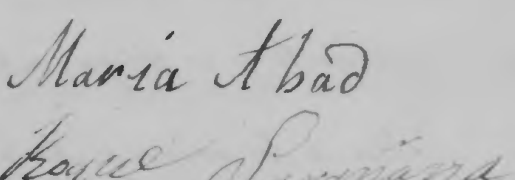 Maria Abad
Roque